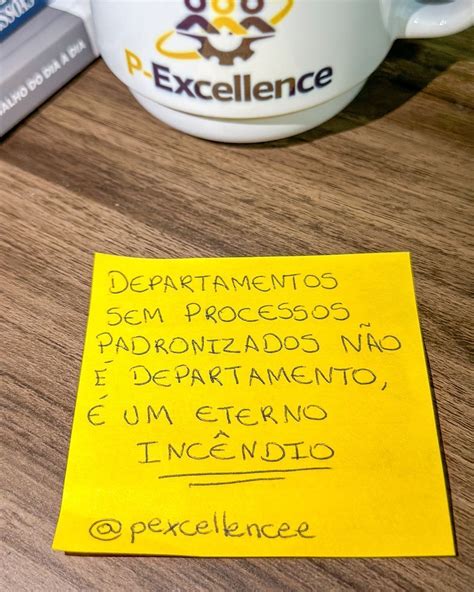 ALHO DO DIA A DIA
P-Excellence
DEPARTAMENTOS
SEM PROCESSOS
PADRONIZADOS NÃO
É DEPARTAMENTO,
É UM ETERNO
INCÊNDIO
@pexcellencee